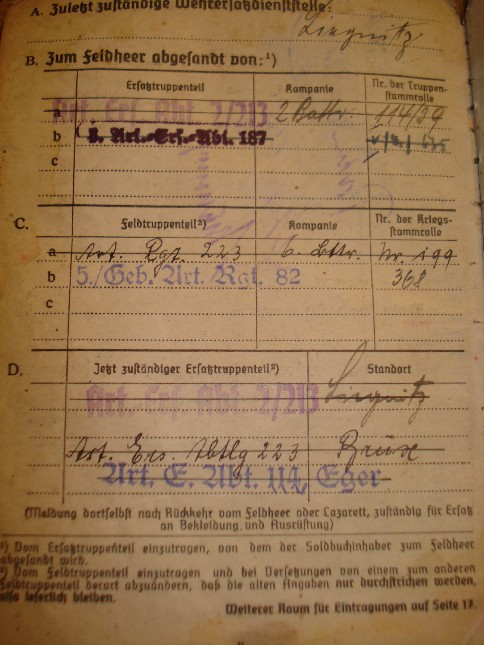 A. Zuletzt zuständige Wehrersatzdienststelle:
Liegnitz
B. Zum Feldheer abgesandt von:¹)
Ersatztruppenteil Kompanie Nr. der Truppen-
stammrolle
Art. Ers. Abt. 2/213 2 Battr. 114/39
b l. Art.-Ers.-Abt. 187
c
C. Feldtruppenteil²) Kompanie Nr. der Kriegs-
stammrolle
a Art. Rgt. 223 6. Bttr. Nr. 199
b 5./Geb. Art. Rgt. 82 368
c
D. Jetzt zuständiger Ersatztruppenteil²) Standort
Art. Ers. Abt. 2/213 Liegnitz
Art. Ers. Abtlg 223 Brüx
Art. E. Abt. 114, Eger
(Meldung dortselbst nach Rückkehr vom Feldheer oder Lazarett, zuständig für Ersatz
an Bekleidung und Ausrüstung)
¹) Vom Ersatztruppenteil einzutragen, von dem der Soldbuchinhaber zum Feldheer
abgesandt wird.
²) Vom Feldtruppenteil einzutragen und bei Versetzungen von einem zum anderen
Feldtruppenteil derart abzuändern, daß die alten Angaben nur durchstrichen werden,
also leserlich bleiben.
Weiterer Raum für Eintragungen auf Seite 17.